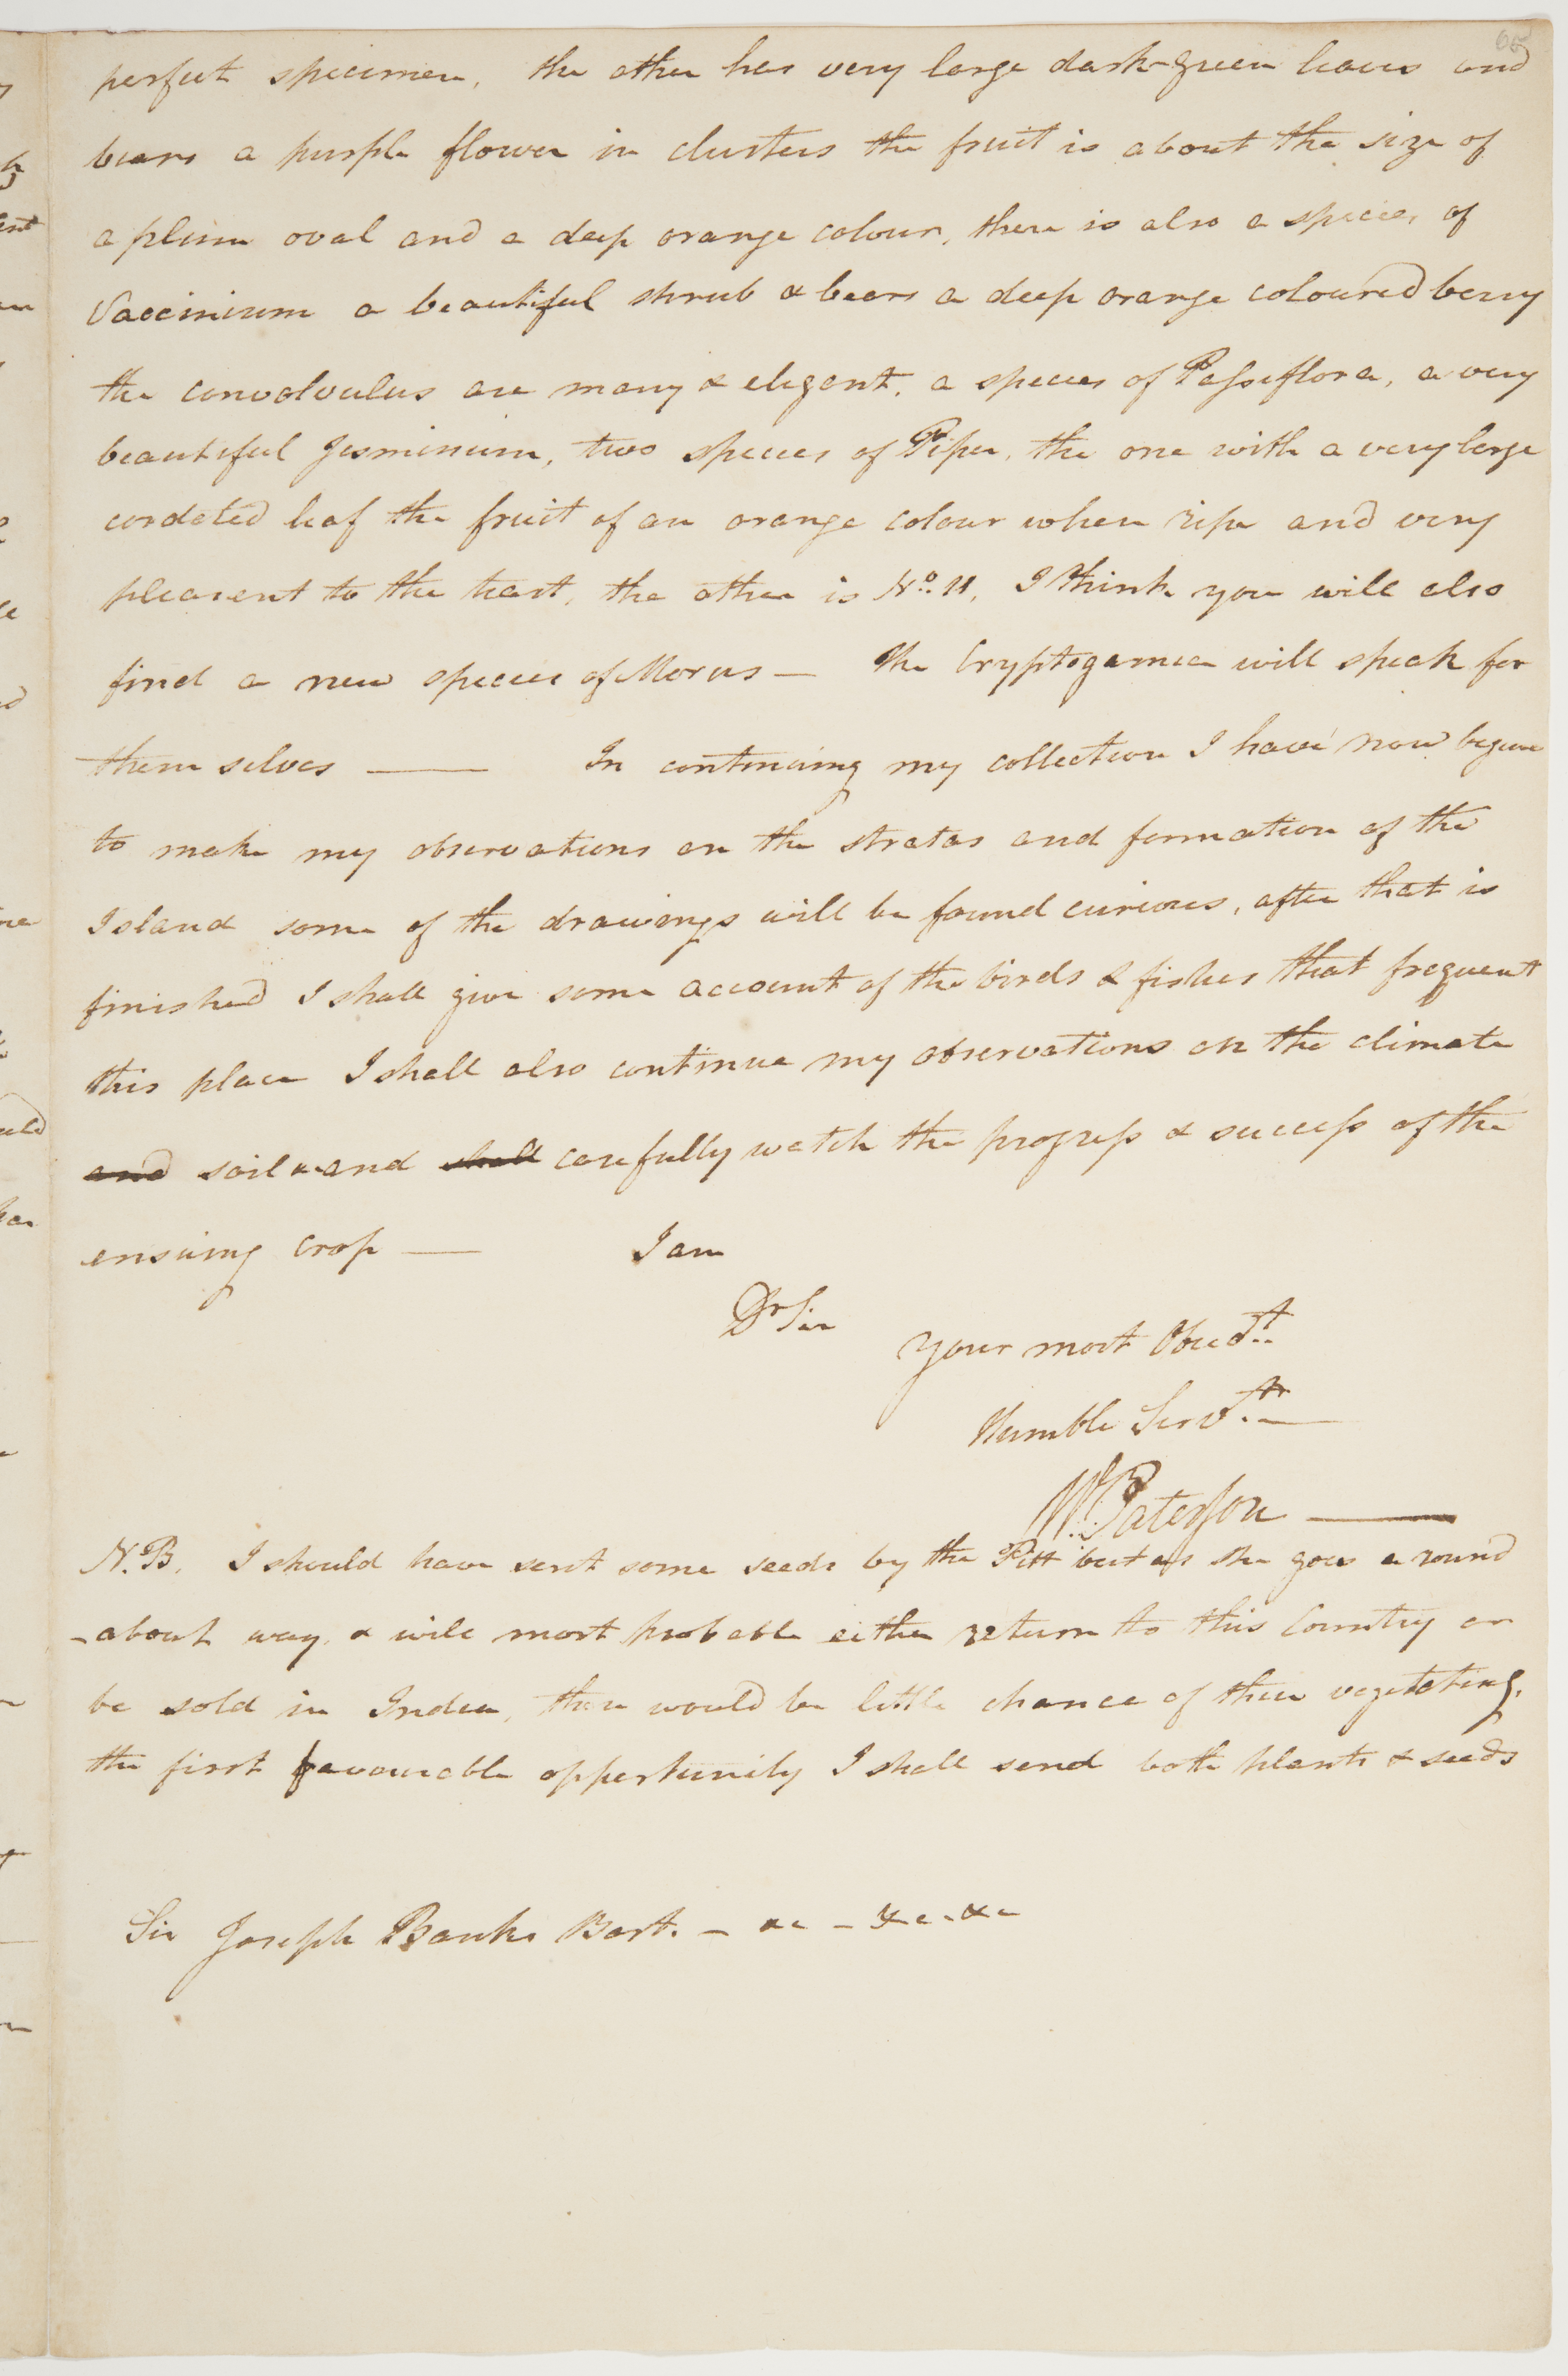 perfect specimen, the other has very large dark-green leaves and
bears a purple flower in clusters the fruit is about the size of
a plum oval and a deep orange colour, there is also a species of
Vaccinium a beautiful shrub & bears a deep orange coloured berry
the convolvulus are many & elegant, a species of Passiflora, a very
beautiful Jesminium, two species of Piper, the one with a very large
cordated leaf the fruit of an orange colour when ripe and very
pleasent to the teast, the other is No. 11, I think you will also
find a new species of Morus — the Cryptogamea will speak for
them selves — In continuing my collection I have now begun
to make my observations on the stratas and formation of the
Island some of the drawings will be found curious, after that is
finished I shall give some account of the birds & fishes that frequent
this place I shall also continue my observations on the climate
and soil & and shall carefully watch the progress & success of the
ensuing crop — I am
Dr Sir
Your most Obedt.
Humble Servt. —
Wm. Paterson —
N.B. I should have sent some seeds by the Pitt but as she goes a round
-about way, & will most probable either return to this Country or
be sold in India, there would be little chance of their vegetating,
the first favourable oppertunity I shall send both plants & seeds
Sir Joseph Banks Bart. — &c — &c - &c